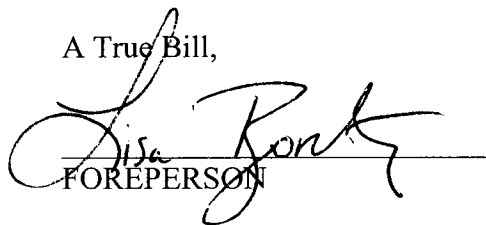 A True Bill,
Lisa
FOREPERSON